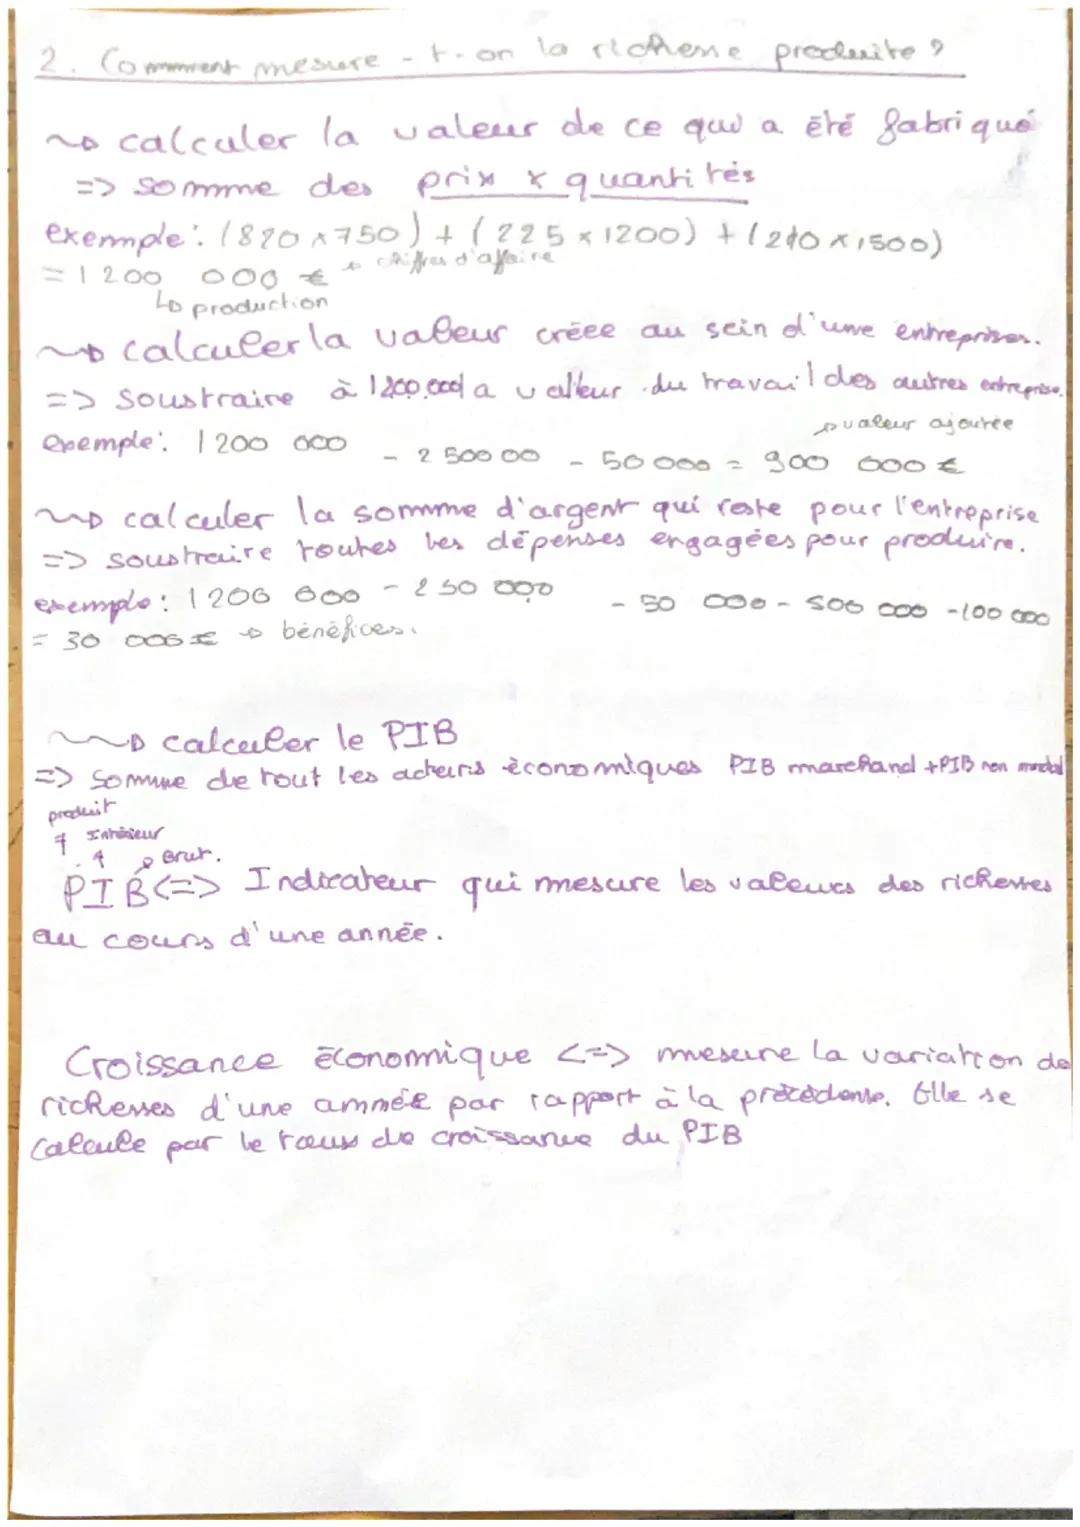 2. Comment mesure-t-on la richesse produite ?
~> calculer la valeur de ce qui a été fabriqué
=> somme des prix x quantités
exemple : (820 x 750) + (225 x 1200) + (210 x 1500)
= 1 200 000 € -> chiffres d'affaire
↳ production
~> calculer la valeur créée au sein d'une entreprises.
=> soustraire à 1200.000 la valeur du travail des autres entreprise.
-> valeur ajoutée
exemple : 1 200 000 - 2 500 00 - 50 000 = 900 000 €
~> calculer la somme d'argent qui reste pour l'entreprise
=> soustraire toutes les dépenses engagées pour produire.
exemple : 1 200 000 - 250 000 - 50 000 - 500 000 - 100 000
= 30 000 € -> bénéfices.
~> calculer le PIB
=> Somme de tout les acteurs économiques PIB marchand + PIB non
produit
↑ Intérieur
↑ Brut.
PIB <=> Indicateur qui mesure les valeurs des richesses
au cours d'une année.
Croissance économique <=> mesure la variation de
richesses d'une année par rapport à la précédente. Elle se
calcule par le taux de croissance du PIB